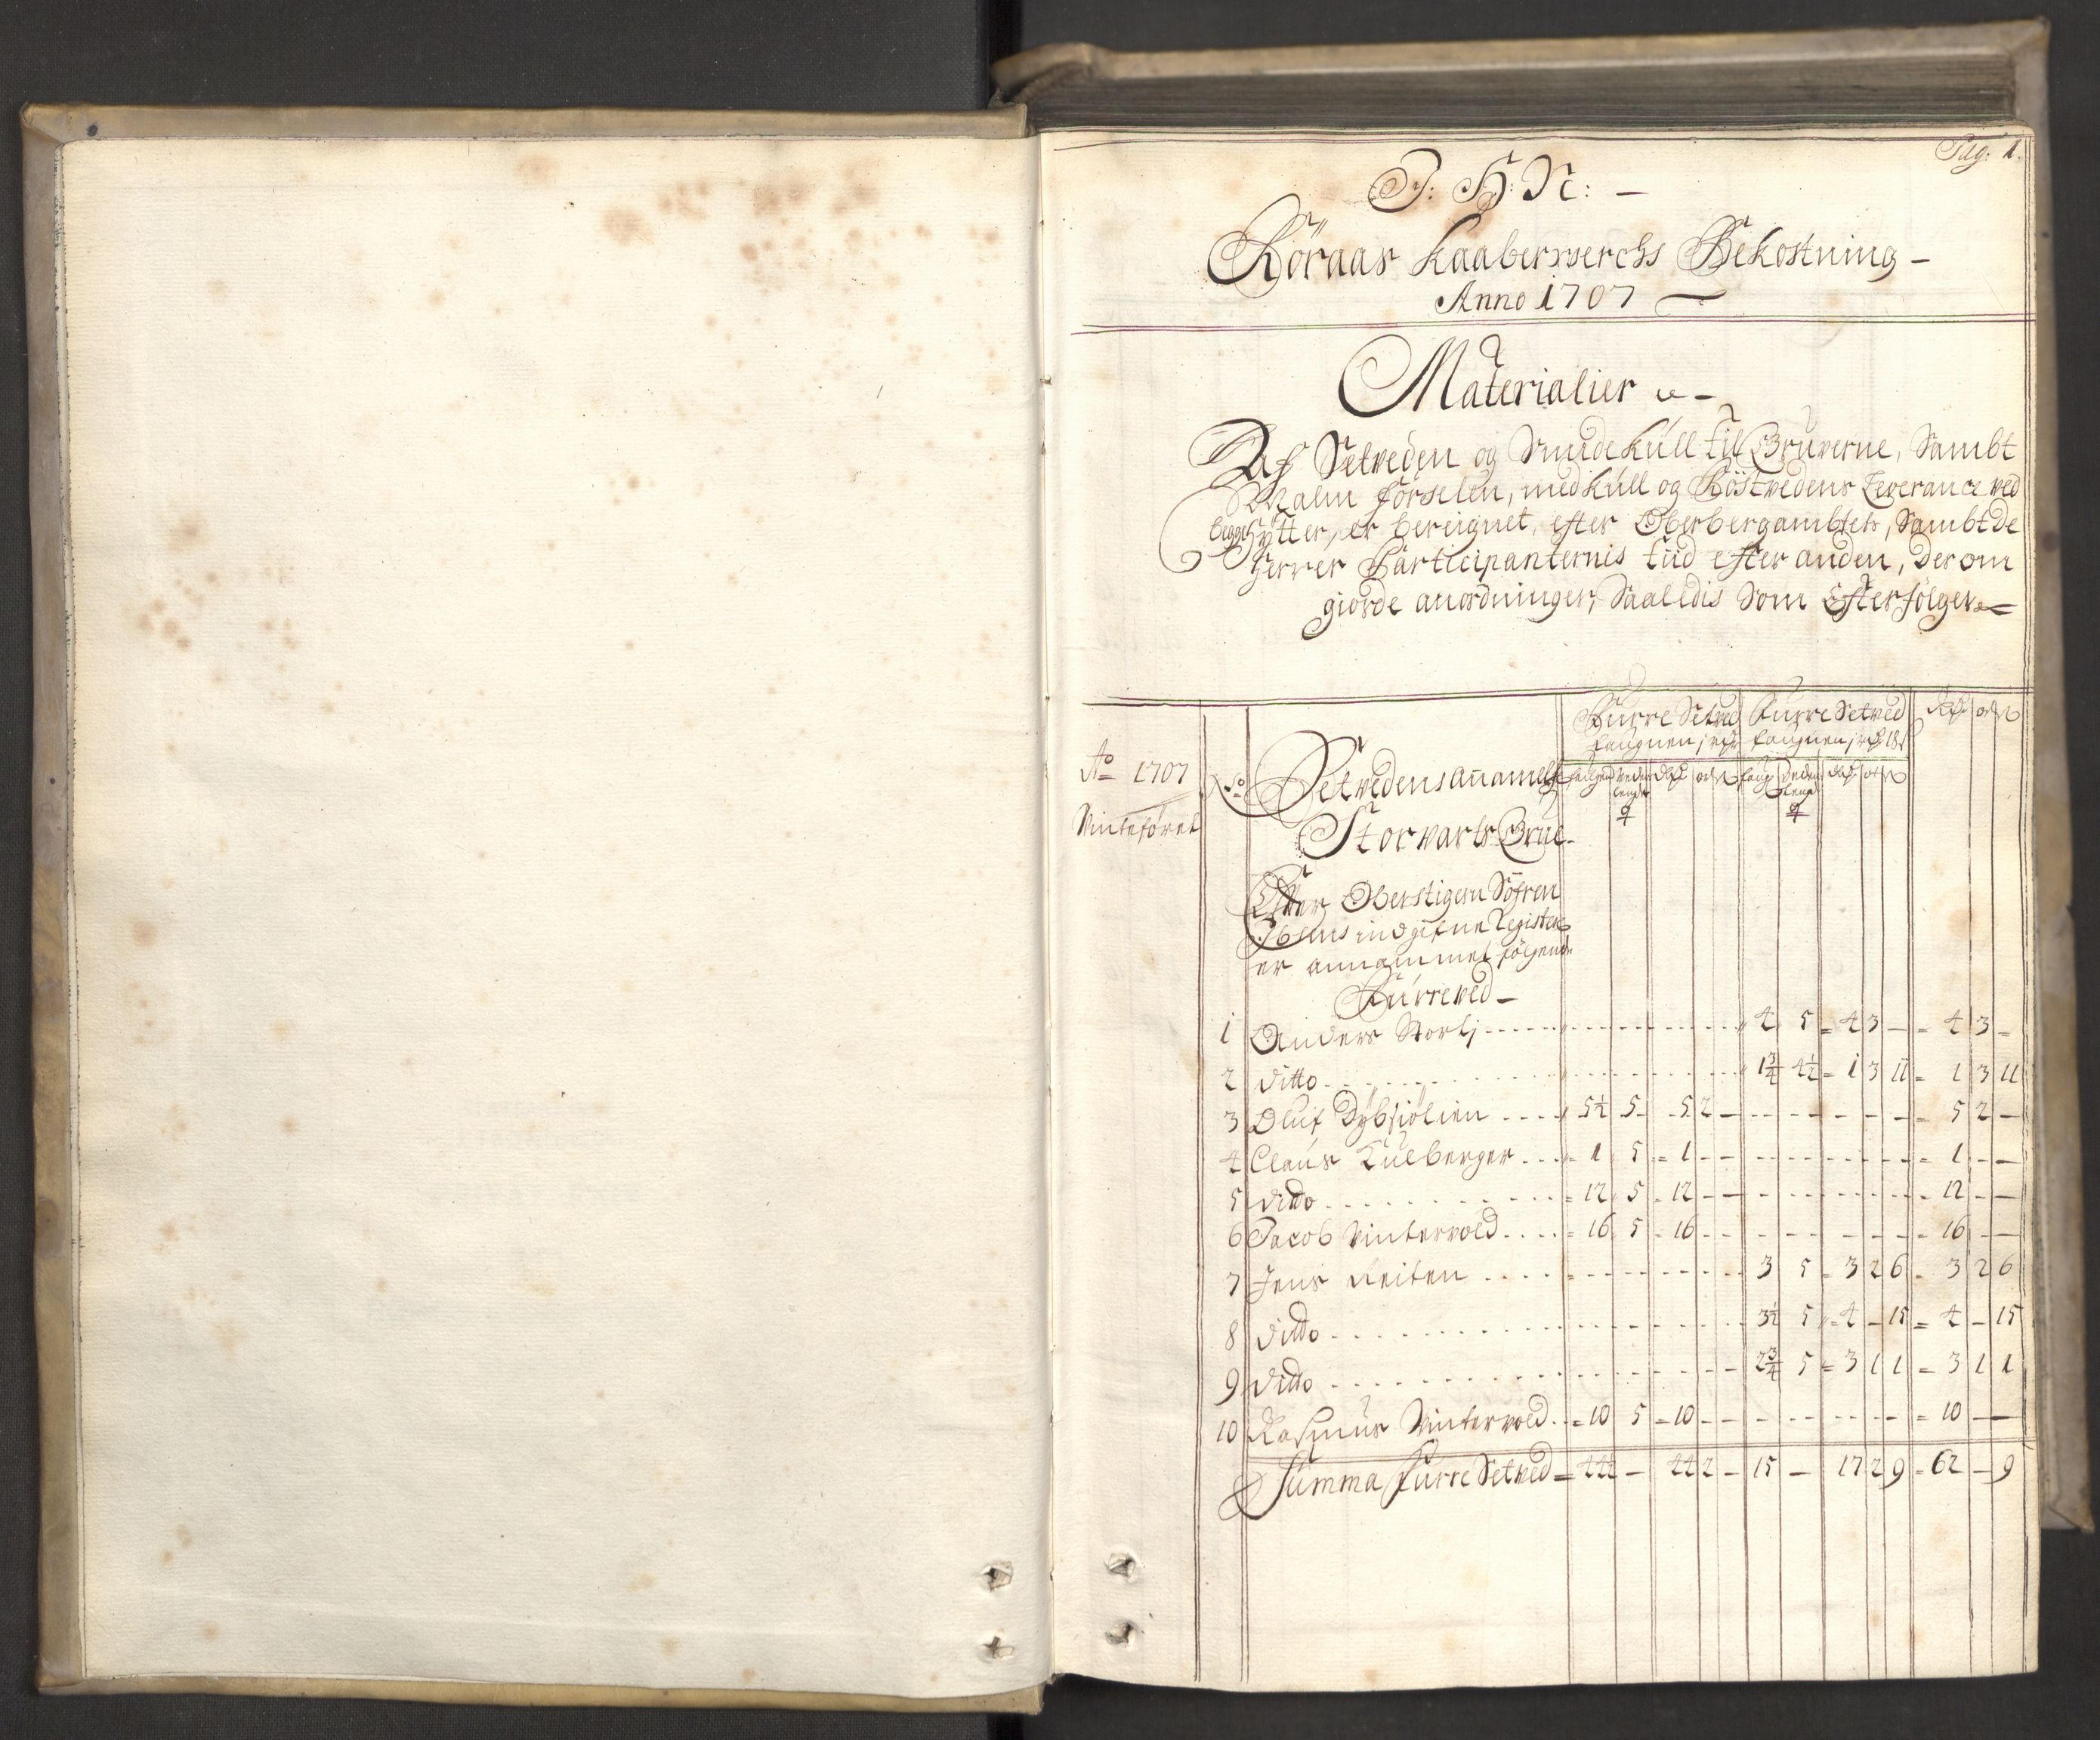 Pag: 1.
J: H: N: —
Röraas Kaaberwerchs Bekostning —
Anno 1707
Materialier
Af Setveden og Smidekull til Gruverne, Sambt
Malm förselen, med kull og Röstvedens Leverance ved
begge Hytter, er bereignet, efter Oberbergambtets, Sambt de
Herrer Participanternis tiid efter anden, der om
giorde anordninger, Saaledis Som Efterfölger
Furre Setved Furre Setved
faugnen faugnen
Ao 1707 No Setvedens annamelse
Vinteföret Storvarts Grue
Efter Oberstigern Söfren
indgifne Register
er annammet fölgende
Furreved —
1 Anders Stortj 4 5 = 4 3 — = 4 3 —
2 ditto 1¾ 4½ = 1 3 11 = 1 3 11
3 Oluf Dybsiölien 5½ 5 5 2 — = 5 2 —
4 Claus Kulberger = 1 5 = 1 — — = 1 — —
5 ditto = 12 5 = 12 — — = 12 — —
6 Jacob Vintervold = 16 5 = 16 — — = 16 — —
7 Jens Reiten 3 5 = 3 2 6 = 3 2 6
8 ditto 3½ 5 = 4 — 15 = 4 — 15
9 ditto 2¾ 5 = 3 1 1 = 3 1 1
10 Rasmus Vintervold = 10 5 = 10 — — = 10 — —
Summa Furre Setved = 44½ — 44 2 — 15 — 17 2 9 = 62 — 9